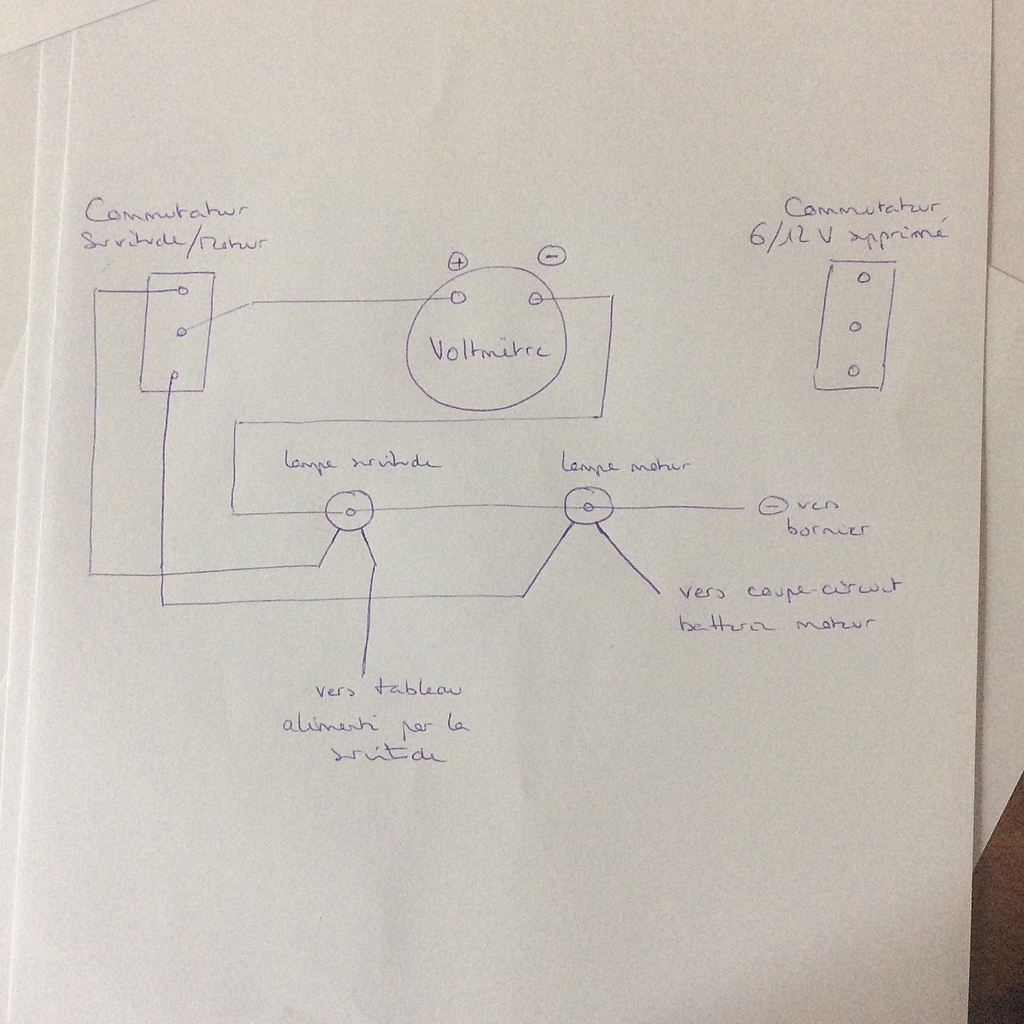 Commutateur
Servitude/Moteur
Commutateur
6/12 V supprimé
+
-
Voltmètre
lampe servitude
lampe moteur
- vers
bornier
vers coupe-circuit
batterie moteur
vers tableau
alimenté par la
servitude